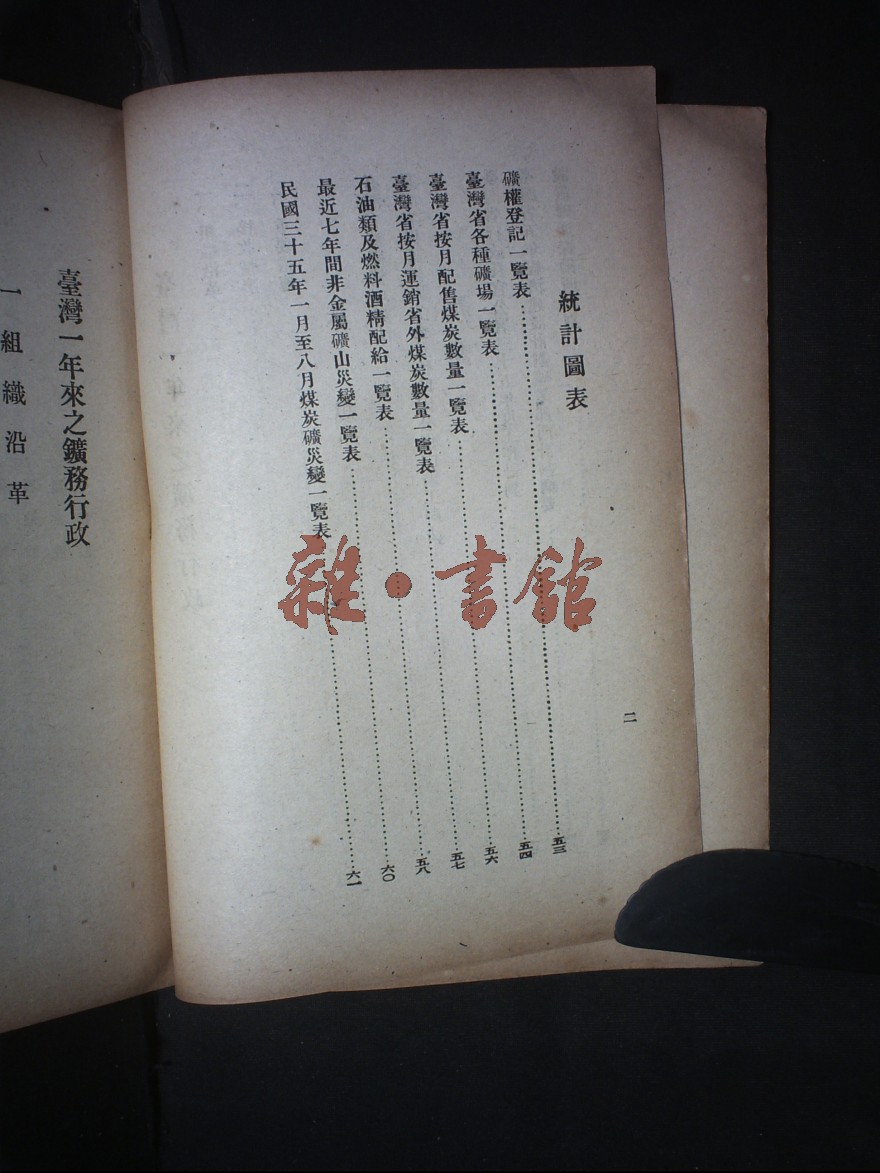 二
統計圖表
礦權登記一覽表……五三
臺灣省各種礦場一覽表……五四
臺灣省按月配售煤炭數量一覽表……五六
臺灣省按月運銷省外煤炭數量一覽表……五七
石油類及燃料酒精配給一覽表……五八
最近七年間非金屬礦山災變一覽表……六〇
民國三十五年一月至八月煤炭礦災變一覽表……六一
臺灣一年來之鑛務行政
一 組織沿革
雜·書館